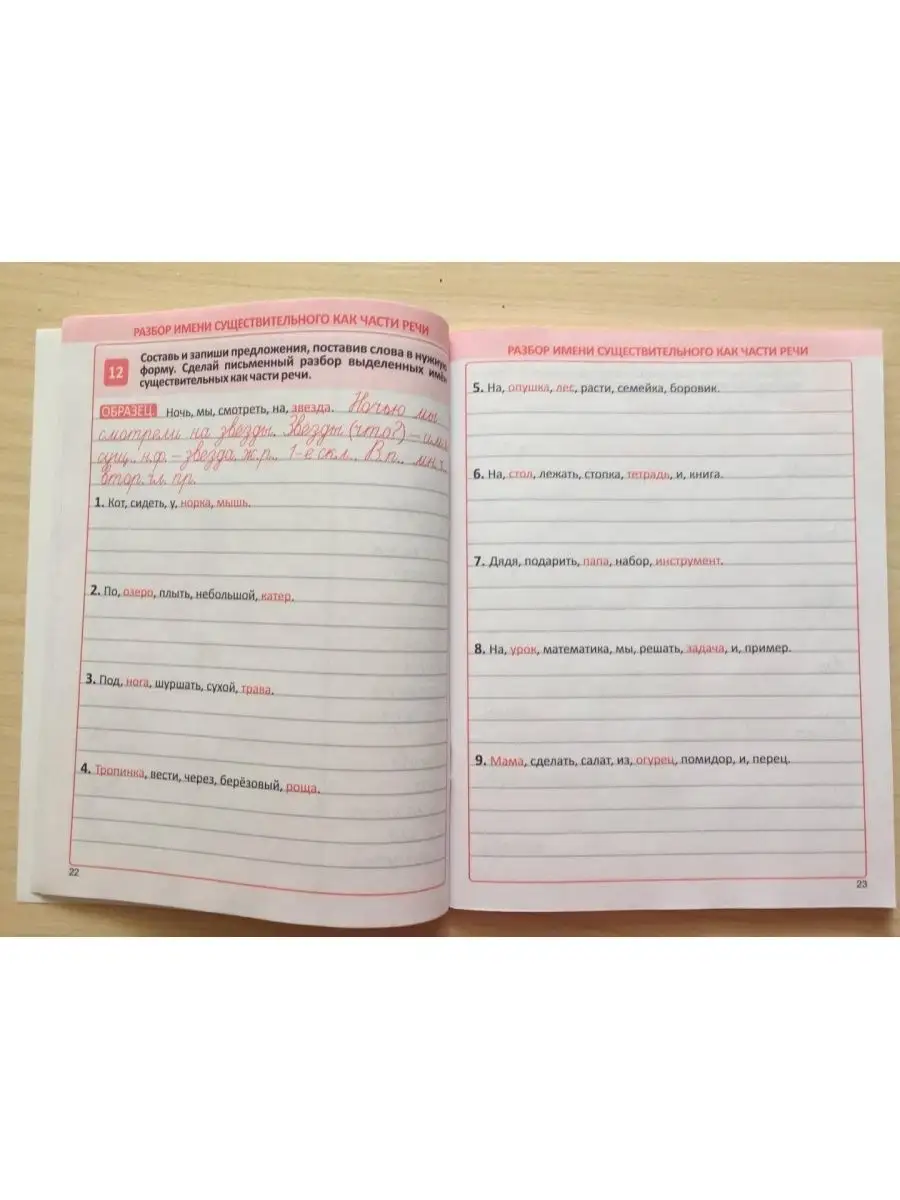 РАЗБОР ИМЕНИ СУЩЕСТВИТЕЛЬНОГО КАК ЧАСТИ РЕЧИ
12
Составь и запиши предложения, поставив слова в нужную
форму. Сделай письменный разбор выделенных имён
существительных как части речи.
ОБРАЗЕЦ. Ночь, мы, смотреть, на, звезда. Ночью мы
смотрели на звёзды. Звёзды (что?) – имя
сущ., н.ф. – звезда, ж.р., 1-е скл., В.п., мн.ч.,
втор. чл. пр.
1. Кот, сидеть, у, норка, мышь.
2. По, озеро, плыть, небольшой, катер.
3. Под, нога, шуршать, сухой, трава.
4. Тропинка, вести, через, берёзовый, роща.
22
РАЗБОР ИМЕНИ СУЩЕСТВИТЕЛЬНОГО КАК ЧАСТИ РЕЧИ
5. На, опушка, лес, расти, семейка, боровик.
6. На, стол, лежать, стопка, тетрадь, и, книга.
7. Дядя, подарить, папа, набор, инструмент.
8. На, урок, математика, мы, решать, задача, и, пример.
9. Мама, сделать, салат, из, огурец, помидор, и, перец.
23